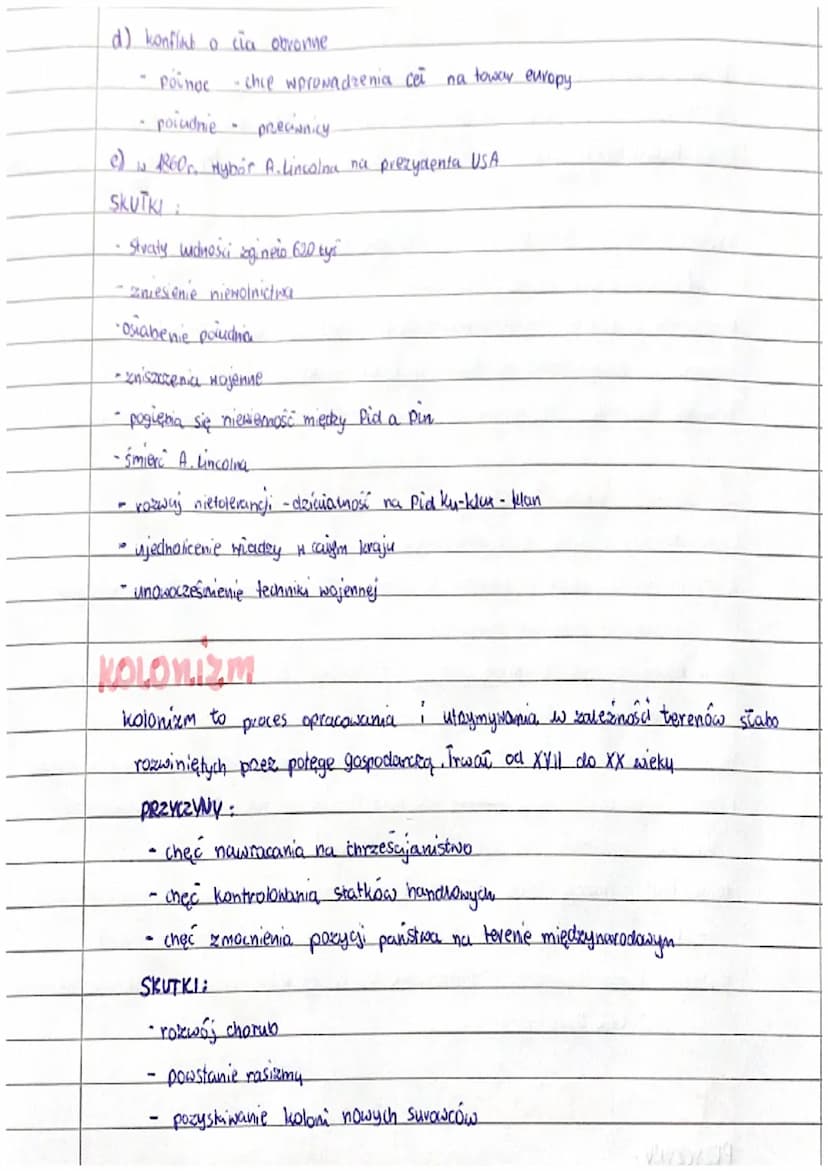 d) konflikt o cła obronne
- północ - chce wprowadzenia ceł na towar europy
- południe - przeciwnicy
e) w 1860r. wybór A.Lincolna na prezydenta USA
SKUTKI :
- straty ludności zgineło 620 tyś
- zniesienie niewolnictwa
- osłabenie południa
- zniszczenia wojenne
- pogłębia się nierówność między Płd a płn
- śmierć A. Lincolna
- rozwuj nietolerancji - działalność na Płd Ku-klux - klan
- ujednolicenie władzy w całym kraju
- unowocześnienie techniki wojennej
KOLONIZM
kolonizm to proces opracowania i utrzymywania w zależności terenów słabo
rozwiniętych przez potęge gospodarczą. Trwał od XVII do XX wieku
PRZYCZYNY :
- chęć nawracania na chrześcijaństwo
- chęć kontrolowania statków handlowych
- chęć zmocnienia pozycji państwa na terenie międzynarodowym
SKUTKI :
- rozwój chorub
- powstanie rasizmu
- pozyskiwanie koloni nowych surowców